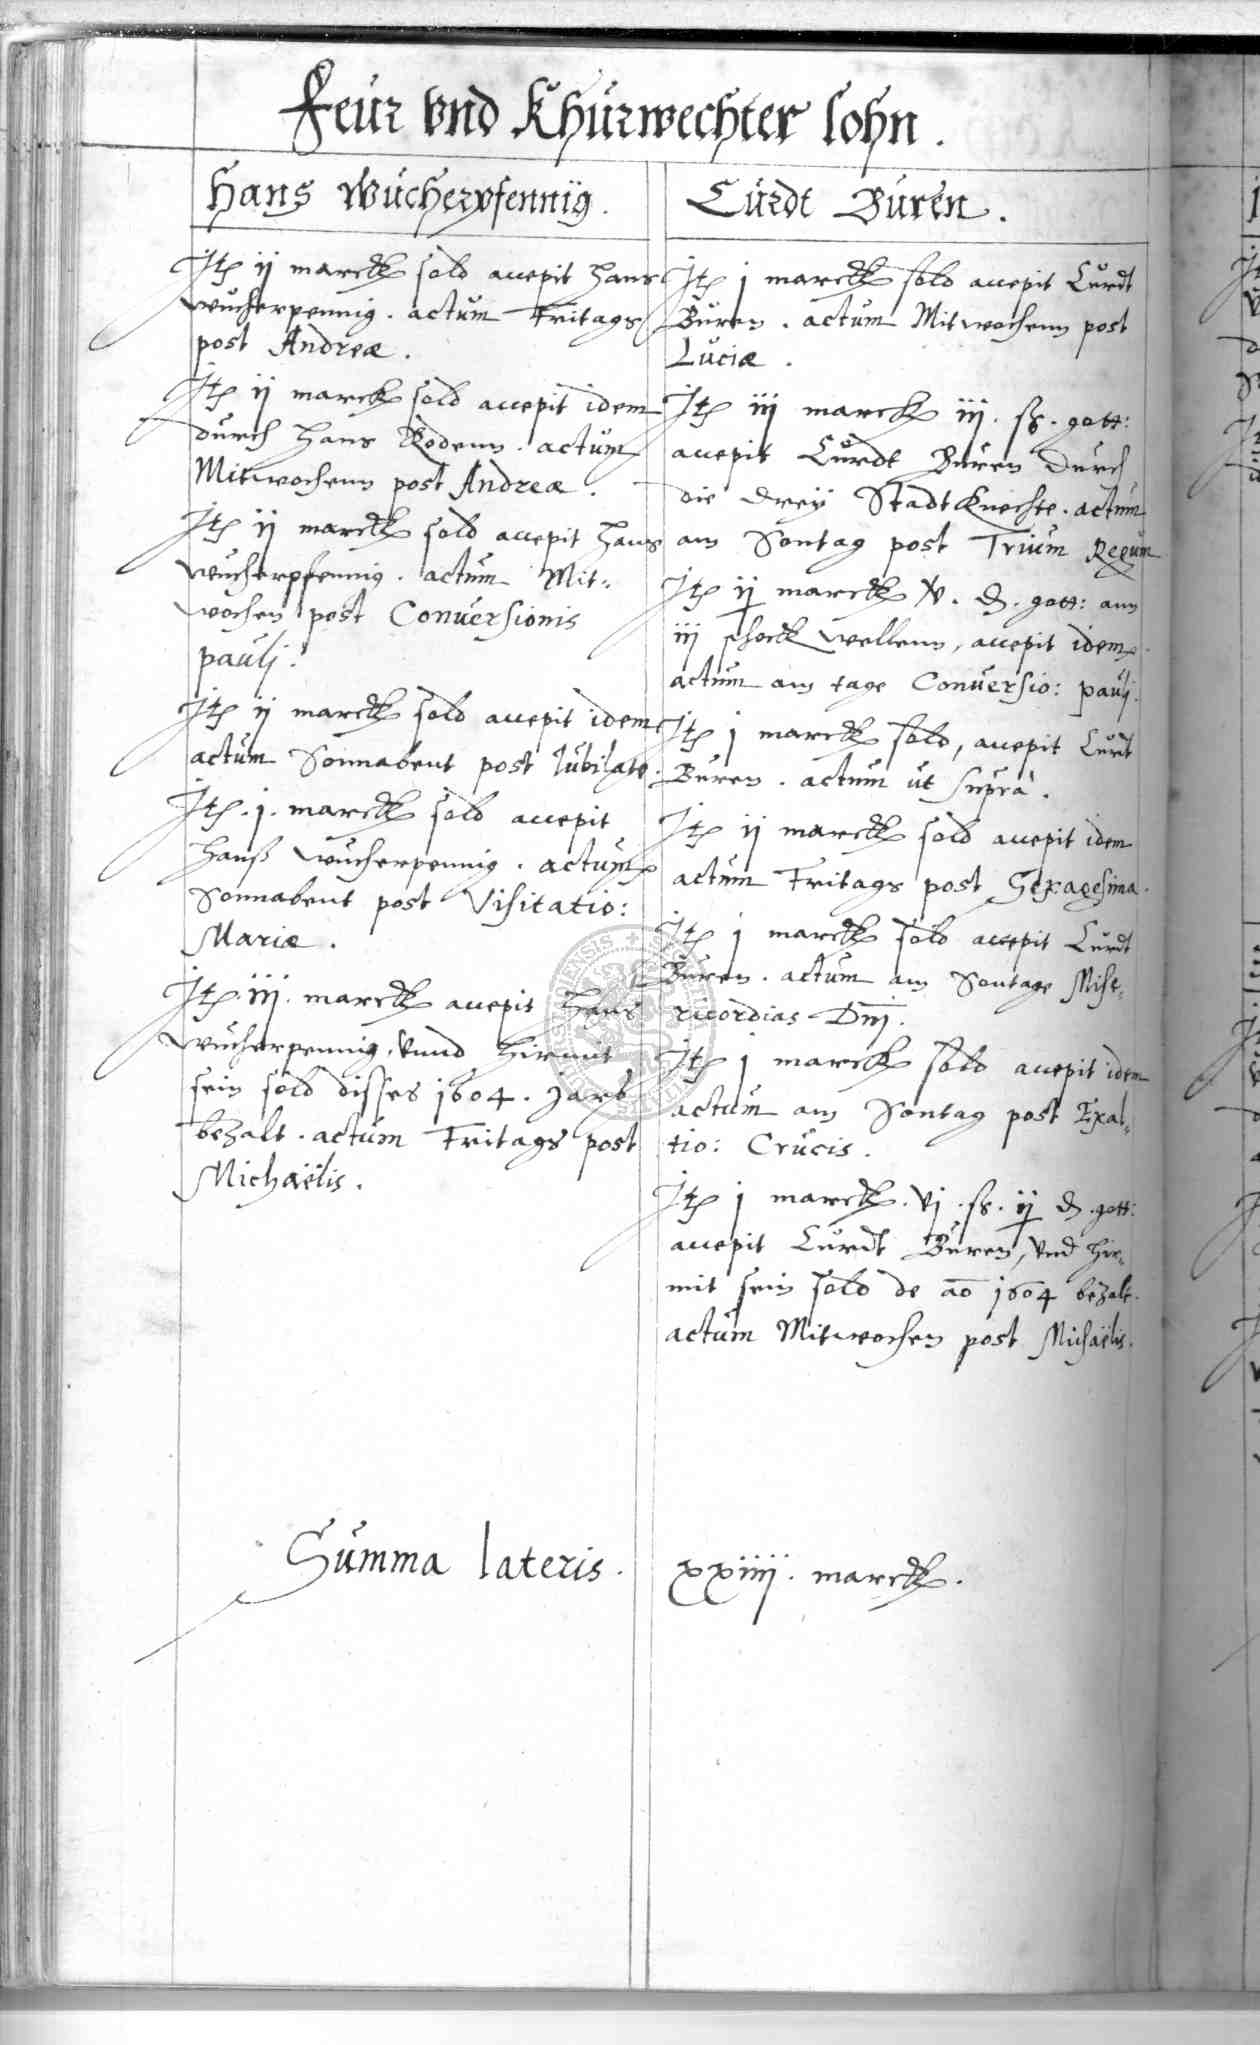 Feur vnd Khurwechter lohn.
Hans Wucherpfennig.
Jtem ij marck sold accepit Hans
Wucherpennig. actum Fritags
post Andreæ.
Jtem ij marck sold accepit idem
durch Hans Rodenn. actum
Mitwochenn post Andreæ.
Jtem ij marck sold accepit Hans
Wucherpfennig. actum Mit-
wochen post Conversionis
pauli.
Jtem ij marck sold accepit idem
actum Sonnabent post Iubilate.
Jtem .j. marck sold accepit
Hanß Wucherpennig. actum
Sonnabent post Visitatio:
Mariæ.
Jtem .iij. marck accepit Hans
Wucherpennig, vnnd hirmit
sein sold disses 1604. Jars
bezalt. actum Fritags post
Michaëlis.
Curdt Buren.
Jtem j marck sold accepit Curdt
Buren. actum Mitwochenn post
Luciæ.
Jtem iij marck iij. ß. gott:
accepit Curdt Buren durch
die drey StadtKnechte. actum
am Sontag post Trium Regum
Jtem ij marck v. d. gott: ann
iij schock wellenn, accepit idem.
actum am tage Conversio: pauli.
Jtem j marck sold, accepit Curdt
Buren. actum ut suprà.
Jtem ij marck sold accepit idem
actum Fritags post Sexagesima.
Jtem j marck sold accepit Curdt
Buren. actum am Sontage Mise-
ricordias Dni.
Jtem j marck sold accepit idem
actum am Sontag post Exal-
tio: Crucis.
Jtem j marck. vj. ß. ij d. gott:
accepit Curdt Buren, vnd hir-
mit sein sold de ao 1604 bezalt.
actum Mitwochen post Michaëlis.
Summa lateris. xxiiij. marck.